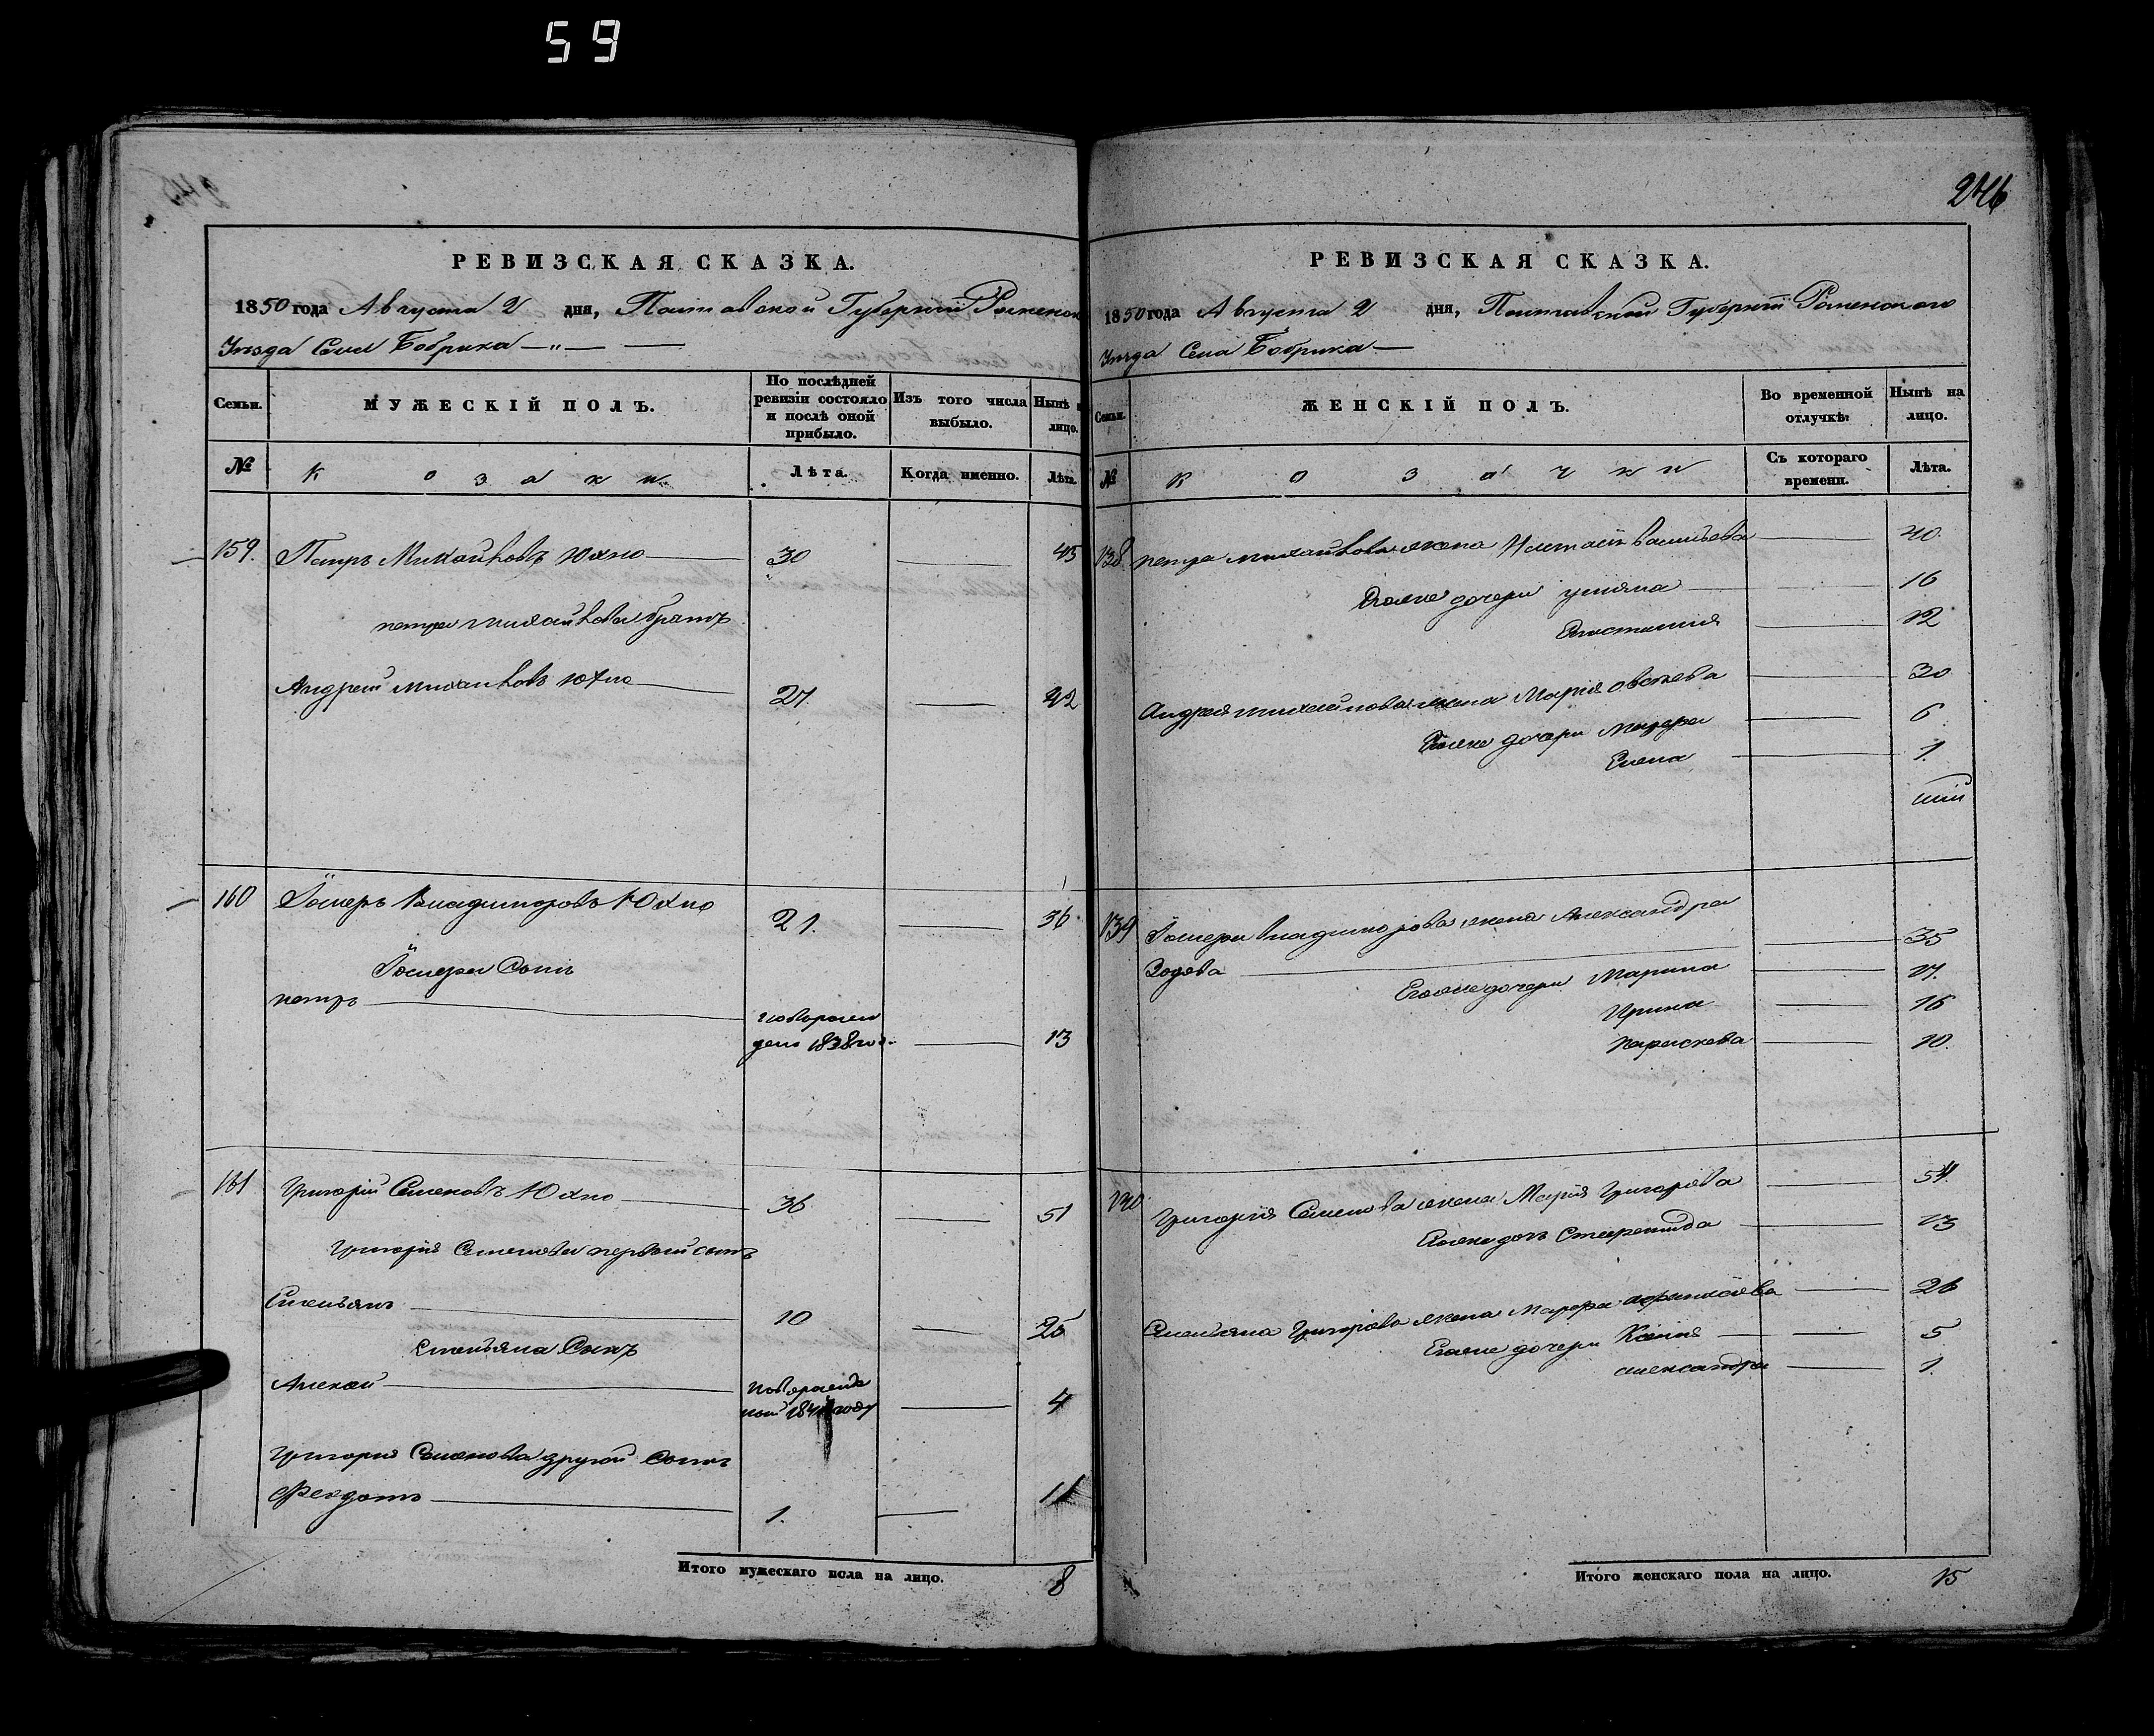 59
246
РЕВИЗСКАЯ СКАЗКА.
1850 года Августа 2 дня, Полтавской Губерніи Роменск
Уѣзда Села Бобрика
Семьи. МУЖЕСКІЙ ПОЛЪ. По послѣдней ревизіи состояло и послѣ оной прибыло. Изъ того числа выбыло. Нынѣ лицо.
№ Козаки Лѣта. Когда именно. Лѣта.
159. Петръ Михайловъ Юхно 30 45
петра михайлова братъ
Андрей михайловъ юхно 27. 42
160 Владимировъ Юхно 21. 36
Сынъ
петръ новорож
денъ 1838 год. 13
161 Григорій Семеновъ Юхно 36 51
Григорія Семенова первый сынъ
Емельянъ 10 25
Емельяна Сынъ
Алексѣй 4
Григорія Семенова другой Сынъ
Федотъ 1. 11
Итого мужескаго пола на лицо. 8
РЕВИЗСКАЯ СКАЗКА.
1850 года Августа 2 дня, Полтавской Губерніи Роменского
Уѣзда Села Бобрика
Семьи. ЖЕНСКІЙ ПОЛЪ. Во временной отлучкѣ: Нынѣ на лицо.
№ Козачки Съ котораго времени. Лѣта.
138 петра михайлова жена Васильева 40.
Егоже дочери уляна 16
12
Андрея михайлова жена Марія 30
Егоже дочери 6
Елена 1.
139 Владимирова жена Александра
35
Егоже дочери Марина 17.
Ирина 16
параскева 10.
140 Григорія Семенова жена Марія Григорьева 54
Егоже дочь 13
Емельяна Григорьева жена Марфа 26
Егоже дочери Ксенія 5
александра 1.
Итого женскаго пола на лицо. 15